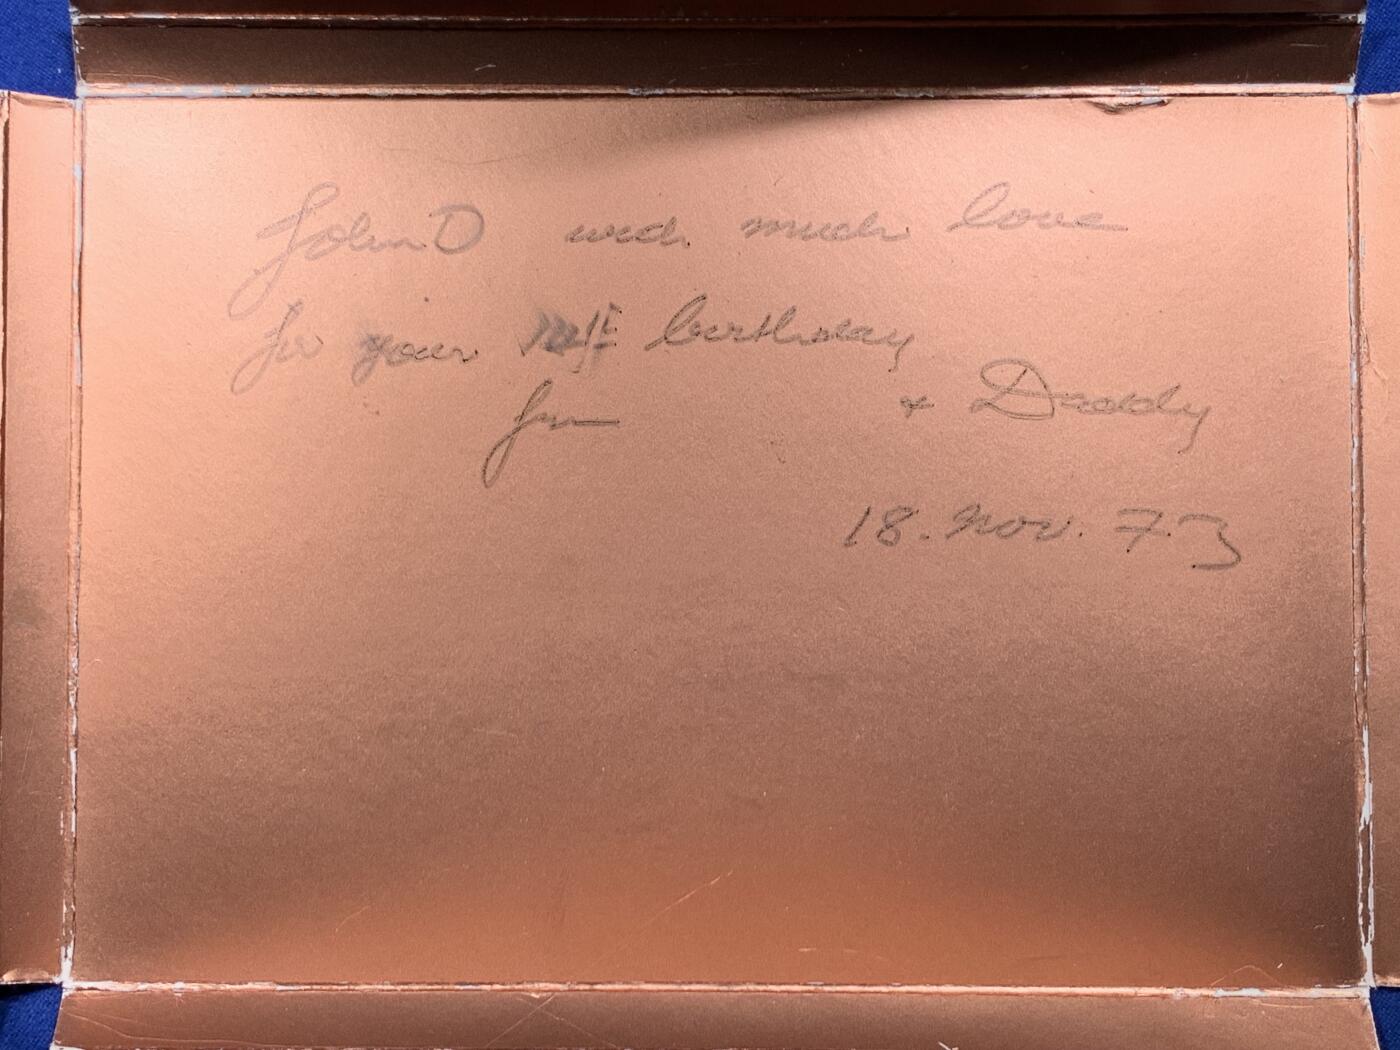 John D with much love
for your birthday
from & Daddy
18. Nov. 73